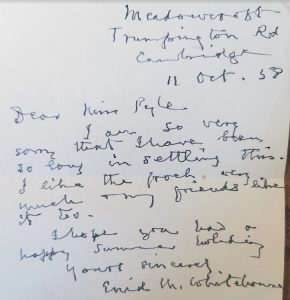 Meadowcroft
Trumpington Rd
Cambridge
11 Oct. 58
Dear Miss Pyle
I am so very
sorry that I have been
so long in settling this.
I like the frock very
much & my friends like
it too.
I hope you had a
happy summer holiday
Yours sincerely
Enid M. Whitehouse